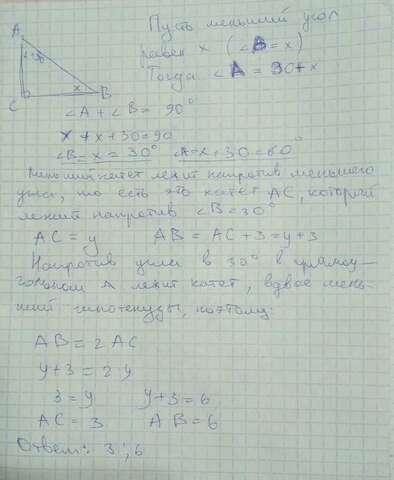 Пусть меньший угол
равен x (∠B = x)
Тогда ∠A = 30+x
A
x+30
C
x
B
∠A + ∠B = 90°
x + x + 30 = 90
∠B = x = 30° ∠A = x + 30 = 60°
Меньший катет лежит напротив меньшего
угла, то есть это катет AC, который
лежит напротив ∠B = 30°
AC = y AB = AC + 3 = y + 3
Напротив угла в 30° в прямоу-
гольном Δ лежит катет, вдвое мень-
ший гипотенузы, поэтому:
AB = 2 AC
y + 3 = 2 y
3 = y y + 3 = 6
AC = 3 AB = 6
Ответ: 3; 6